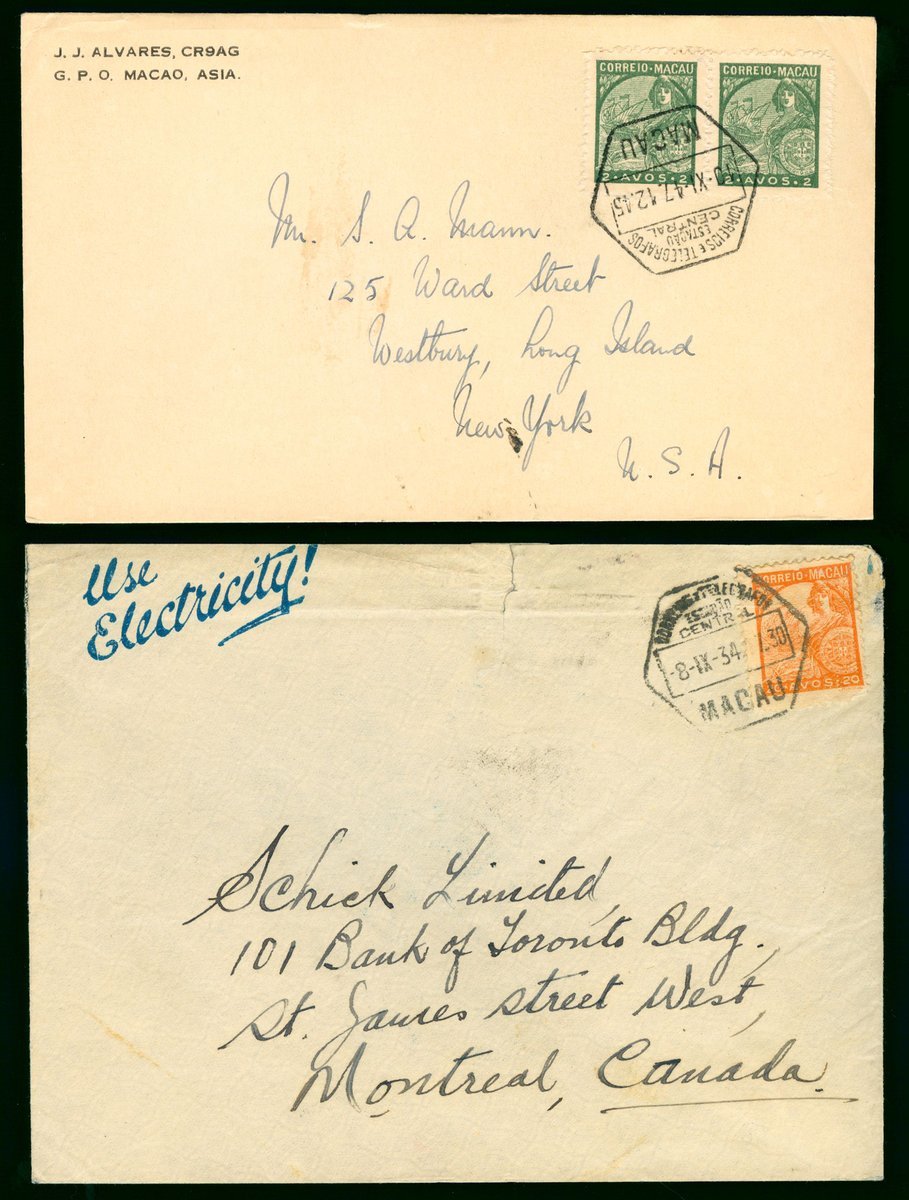 J. J. ALVARES, CR9AG
G. P. O. MACAO, ASIA.
CORREIO·MACAU
CORREIO·MACAU
2·AVOS·2
AVOS·2
MACAU
XI-47.12.45
CORREIOS E TELEGRAFOS
ESTAÇÃO
CENTRAL
Mr. S. A. Mann.
125 Ward Street
Westbury, Long Island
New York
U. S. A.
Use
Electricity!
CORREIO·MACAU
AVOS·20
ESTAÇÃO
CENTRAL
-8-IX-34
MACAU
Schick Limited,
101 Bank of Toronto Bldg.,
St. James Street West,
Montreal, Canada.